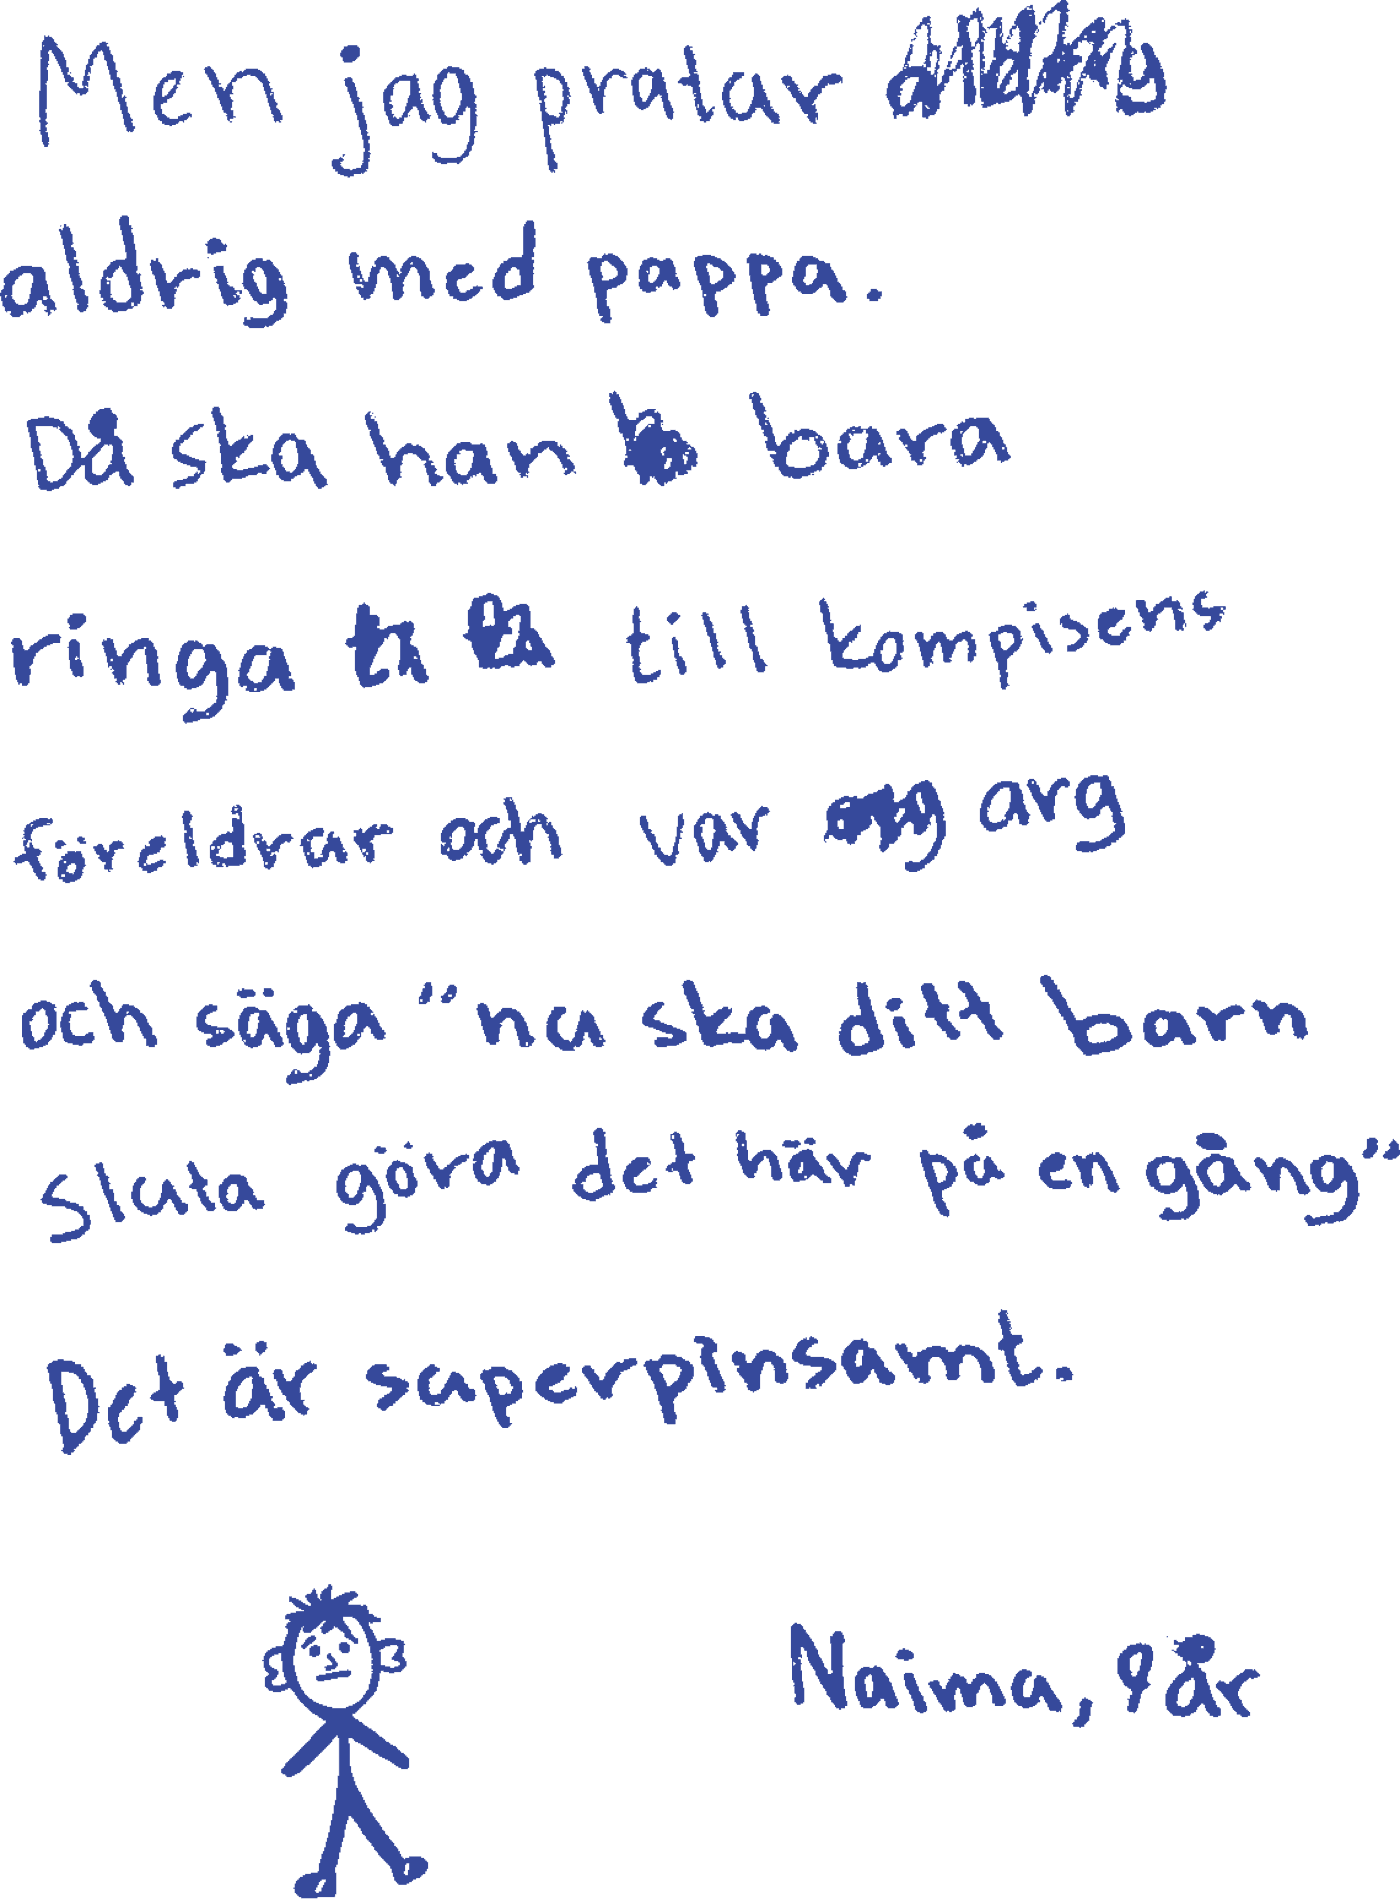 Men jag pratar
aldrig med pappa.
Då ska han bara
ringa till kompisens
föreldrar och var arg
och säga "nu ska ditt barn
sluta göra det här på en gång"
Det är superpinsamt.
Naima, 9 år